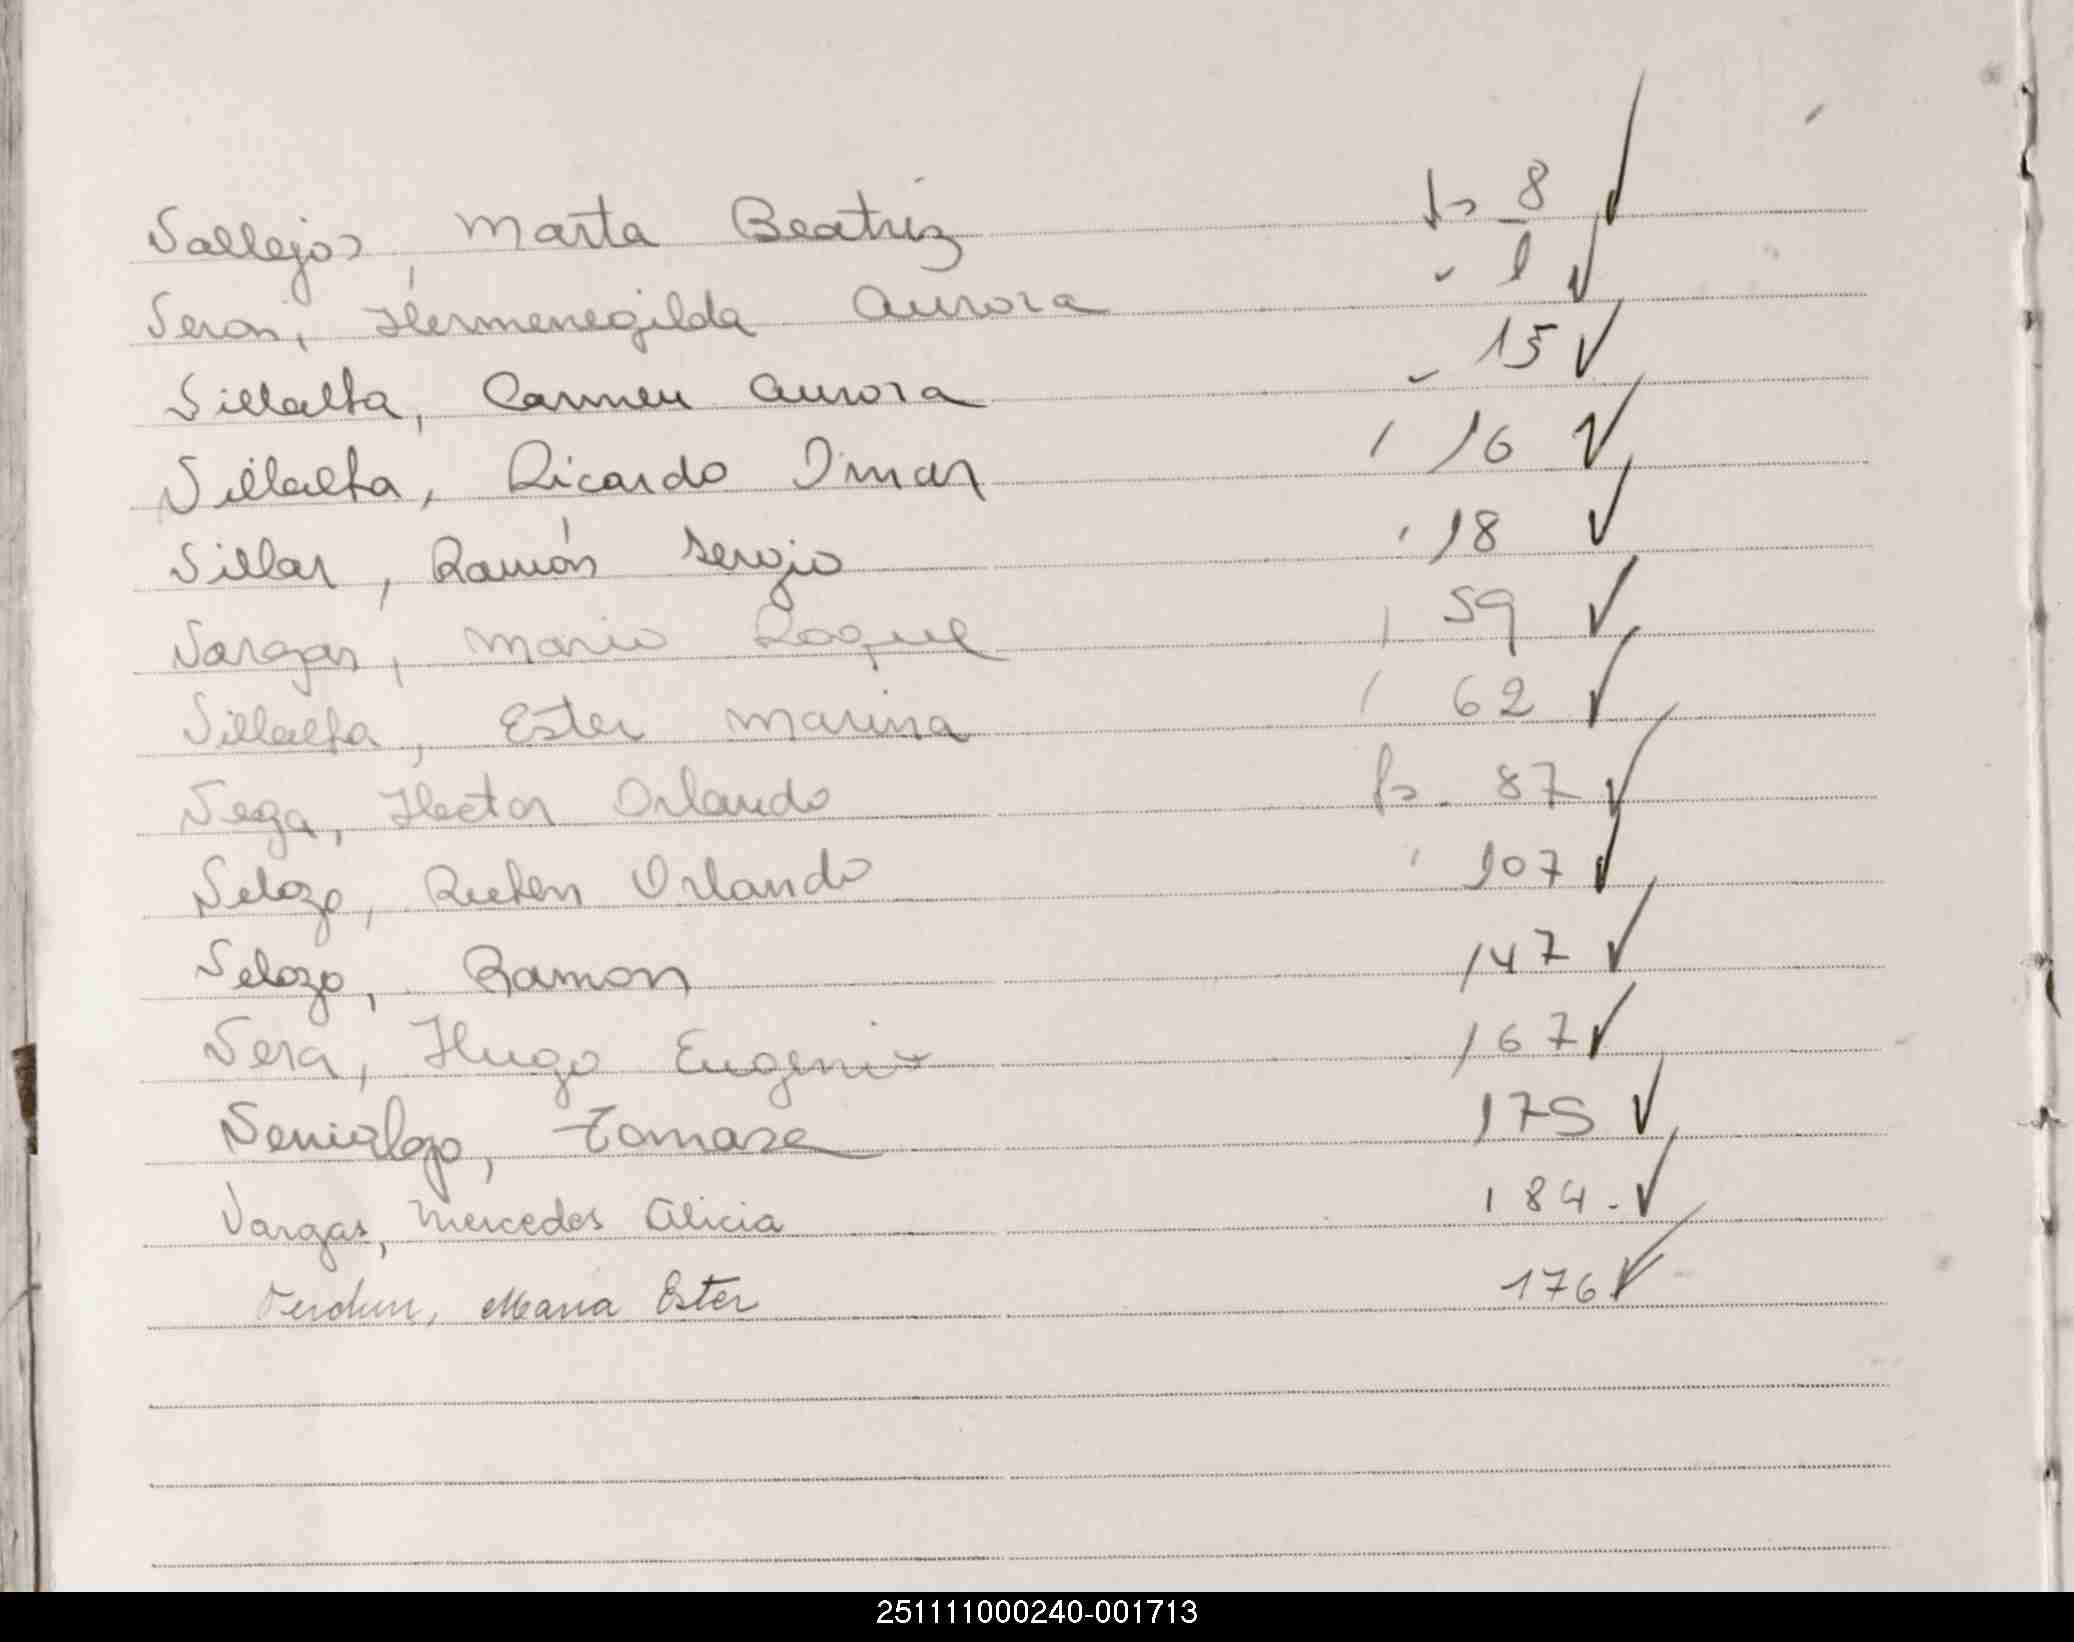 Vallejos, Marta Beatriz fs 8 ✓
Veron, Hermenegilda Aurora " ✓
Villalta, Carmen Aurora " 15 ✓
Villalta, Ricardo Omar " 16 ✓
Villar, Ramón Sergio " 18 ✓
Vargas, Mario Roque " 59 ✓
Villalta, Ester Marina " 62 ✓
Vega, Hector Orlando fs. 87 ✓
Velozo, Ruben Orlando " 107 ✓
Velozo, Ramon 147 ✓
Vera, Hugo Eugenio 167 ✓
Venialgo, Tomasa 175 ✓
Vargas, Mercedes Alicia 184. ✓
Verdun, Maria Ester 176 ✓
251111000240-001713